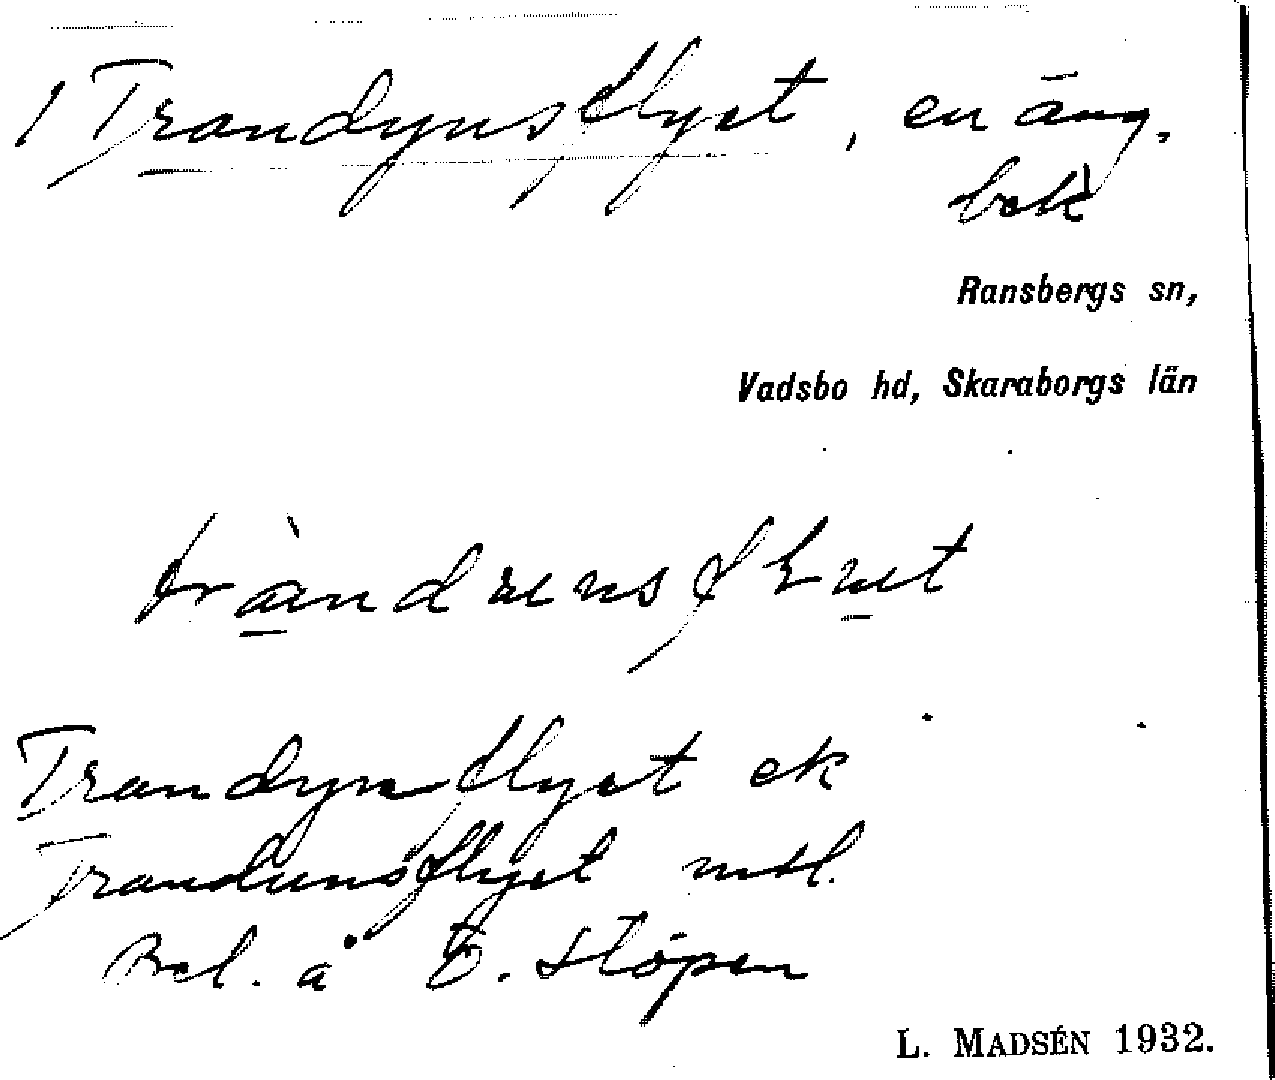 1 Trandynsflyet, en äng.
bek
Ransbergs sn,
Vadsbo hd, Skaraborgs län
Trandynsflyet ek
Trandunsflyet mtl.
Bel. å Ö. Stöpen
L. MADSÉN 1932.